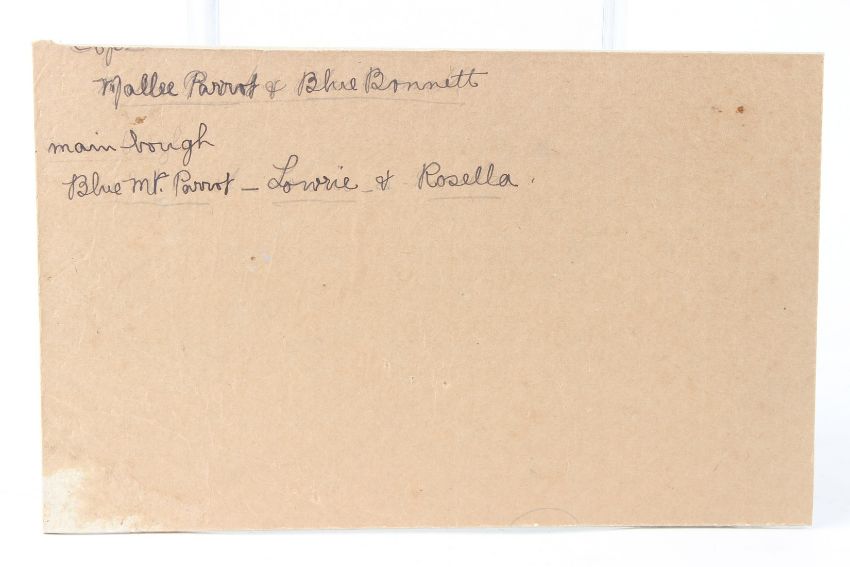 Mallee Parrot & Blue Bonnett
main bough
Blue Mt. Parrot - Lowrie & Rosella.